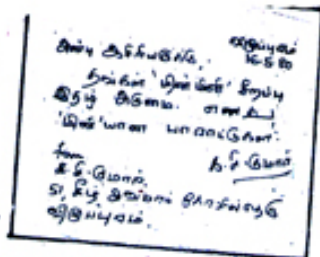 விழுப்புரம்
16-5-80
அன்பு ஆசிரியருக்கு,
தங்கள் 'மின்மினி' சிறப்பு
இதழ் அருமை. எனது
'மின்'யான பாராட்டுகள்.
க.சி. குமார்
க.சி. குமார்,
51, கீழ் கோயில் தெரு
விழுப்புரம்.